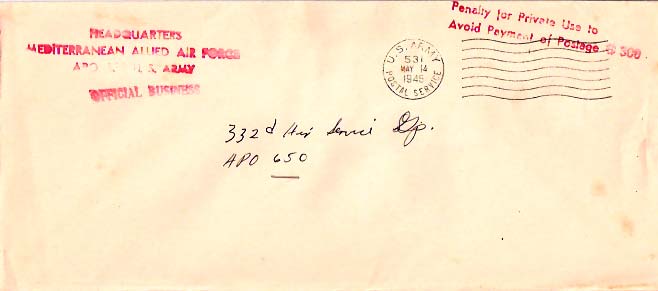 HEADQUARTERS
MEDITERRANEAN ALLIED AIR FORCE
APO U. S. ARMY
OFFICIAL BUSINESS
U.S. ARMY
531
MAY 14
1945
POSTAL SERVICE
Penalty for Private Use to
Avoid Payment of Postage $ 300
332d Air Service Gp.
APO 650